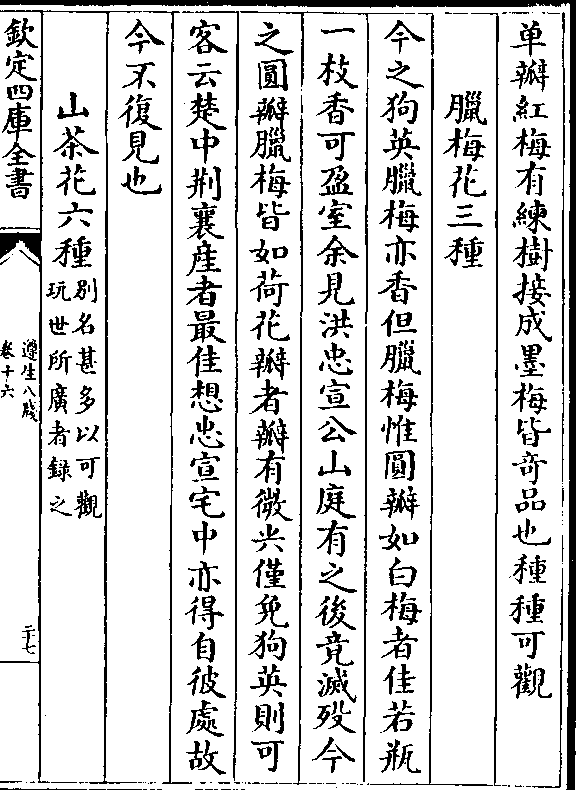 单瓣紅梅有練樹接成墨梅皆奇品也種種可觀
臘梅花三種
今之狗英臘梅亦香但臘梅惟圓瓣如白梅者佳若瓶
一枝香可盈室余見洪忠宣公山庭有之後竟滅歿今
之圓瓣臘梅皆如荷花瓣者瓣有微尖僅免狗英則可
客云楚中荆襄産者最佳想忠宣宅中亦得自彼處故
今不復見也
山茶花六種
别名甚多以可觀
玩世所廣者録之
欽定四庫全書
遵生八牋
卷十六
二十七